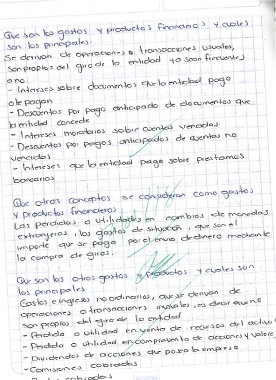 Que son los gastos y productos financieros y cuales
son los principales.
Se derivan de operaciones o transacciones usuales,
son propios del giro de la entidad ya sean frecuentes
o no
- Intereses sobre documentos que la entidad pago
o le pagan
- Descuentos por pago anticipado de documentos que
la entidad concede
- Intereses moratorios sobre cuentas vencidas
- Descuentos por pagos anticipados de cuentas no
vencidas
- Intereses que la entidad pague sobre prestamos
bancarios
Que otros conceptos se consideran como gastos
y productos financieros
Las perdidas o utilidades en cambios de monedas
extranjeras, los gastos de situación, que son el
importe que se paga por el envio de dinero mediante
la compra de giros.
Que son los otros gastos y productos y cuales son
los principales
Gastos e ingresos no ordinarios, que se derivan de
operaciones o transacciones inusuales, es decir que no
son propios del giro de la entidad
- Perdida o utilidad en venta de recursos del activo
- Perdida o utilidad en compraventa de acciones y valores
- Dividendos de acciones que posea la empresa
- Comisiones cobradas
cobradas